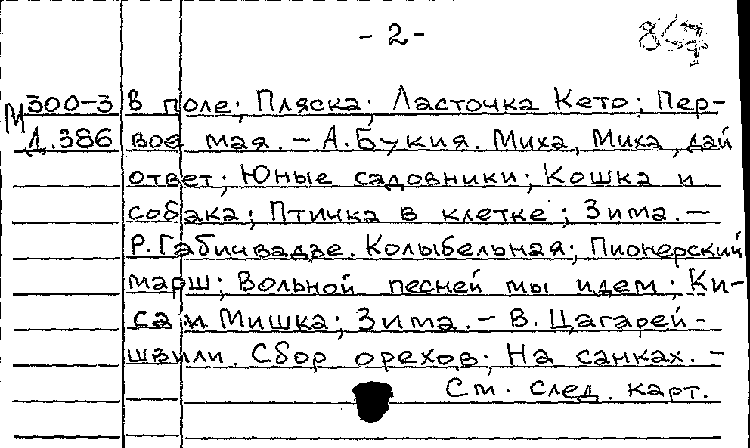 - 2 -
867
М300-3 В поле; Пляска; Ласточка Кето; Пер-
Д.386 вое мая. – А.Букия. Миха, Миха, дай
ответ; Юные садовники; Кошка и
собака; Птичка в клетке; Зима. –
Р.Габичвадзе. Колыбельная; Пионерский
марш; Вольной песней мы идем; Ки-
са и Мишка; Зима. – В. Цагарей-
швили. Сбор орехов; На санках. –
См. след. карт.